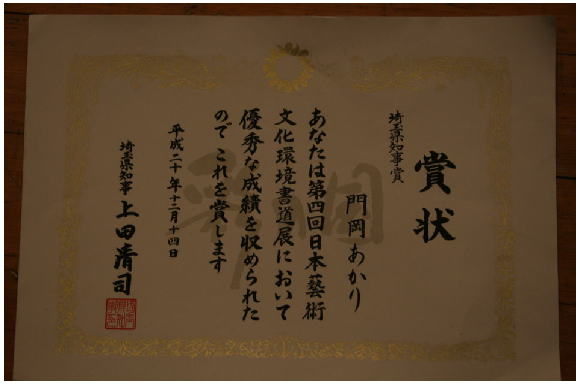 賞状
埼玉県知事賞
門岡あかり
あなたは第四回日本藝術
文化環境書道展において
優秀な成績を収められた
のでこれを賞します
平成二十年十二月十四日
埼玉県知事 上田清司